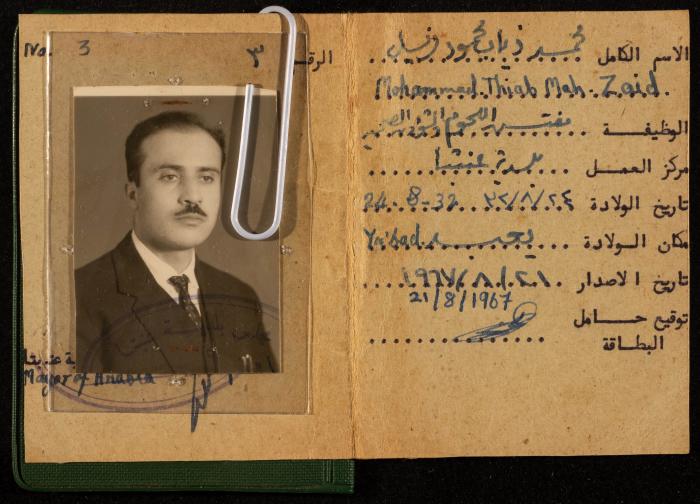 No. 3
الرقم ٣
Mayor of Anabta
الاسم الكامل محمد ذياب محمود زيد
Mohammad Thiab Mah. Zaid
الوظيفــة مفتش اللحوم
مركز العمـل بلدية عنبتا
تاريخ الولادة ٣٢/٨/٢٤ 24-8-32
مكان الـولادة يعبد Ya'bad
تاريخ الاصدار ١٩٦٧/٨/٢١
21/8/1967
توقيع حـــامل
البطاقة